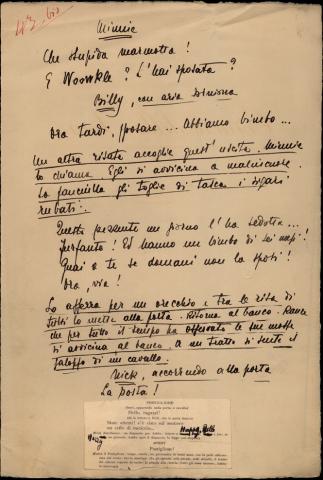 43, bis
Minnie
Che stupida marmotta!
E Wowkle? L'hai sposata?
Billy, con aria sorniona
Ora tardi, sposare... Abbiamo bimbo...
Un altra risata accoglie quest'uscita. Minnie
lo chiama. Egli si avvicina a malincuore.
La fanciulla gli toglie di tasca i sigari
rubati:
Questa pezzente un giorno l'ha sedotta...
Furfanto! Ed hanno un bimbo di sei mesi!
Guai a te se domani non la sposi!
Ora, via!
Lo afferra per un orecchio e tra le risa di
tutti lo mette alla porta. Ritorna al banco. Rance
che per tutto il tempo ha osservato le sue mosse
si avvicina al banco. A un tratto si sente il
galoppo di un cavallo.
Nick, accorrendo alla porta
La posta!
POSTIGLIONE
Hello, ragazzi!
Harry
Happy,
Postiglione!